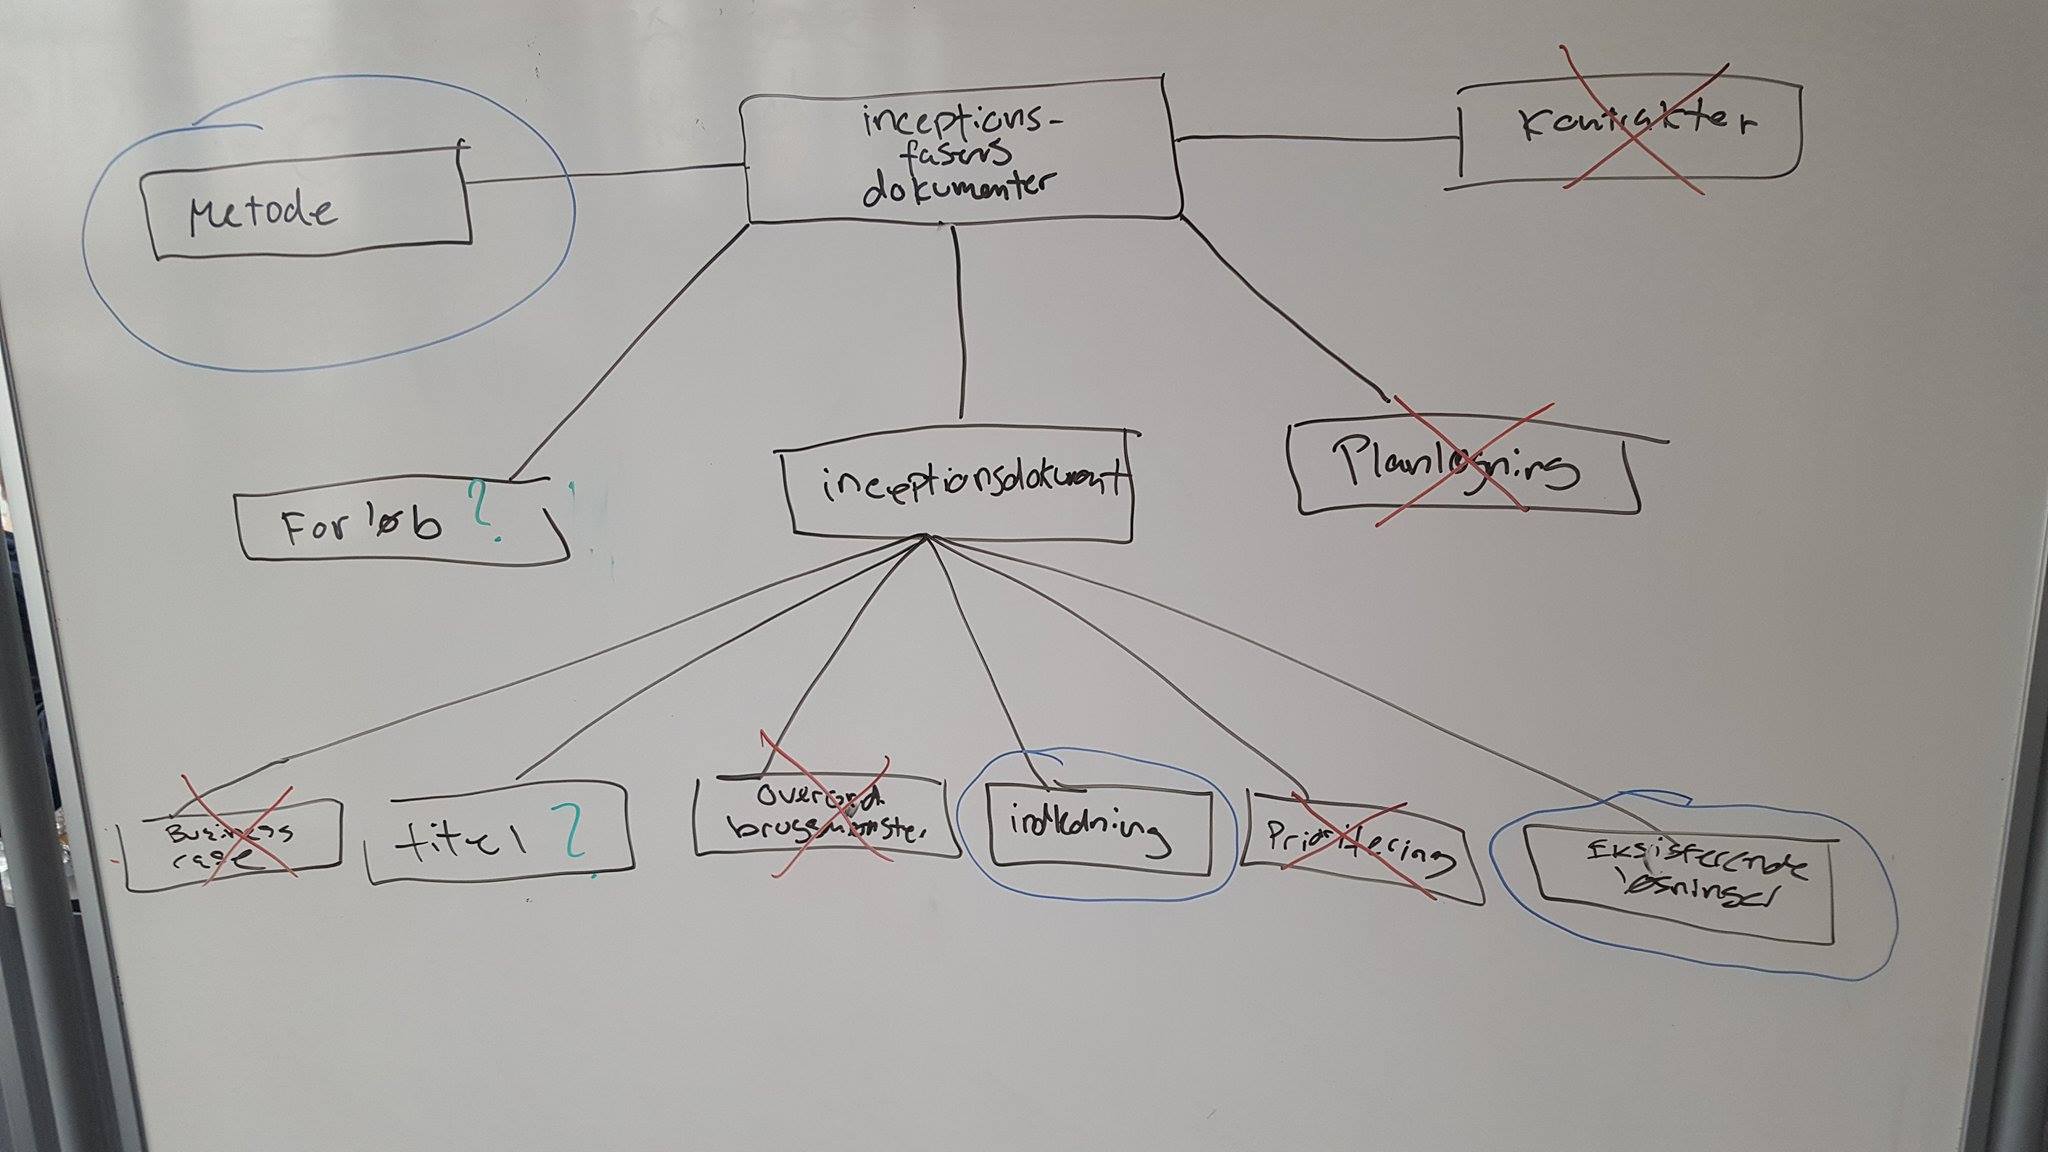 inceptions-
fasens
dokumenter
Kontrakter
Metode
Forløb ?
inceptionsdokument
Planlægning
Business
case
titel ?
Overordnet
brugsmønster
indledning
Prioritering
Eksisterende
løsninger